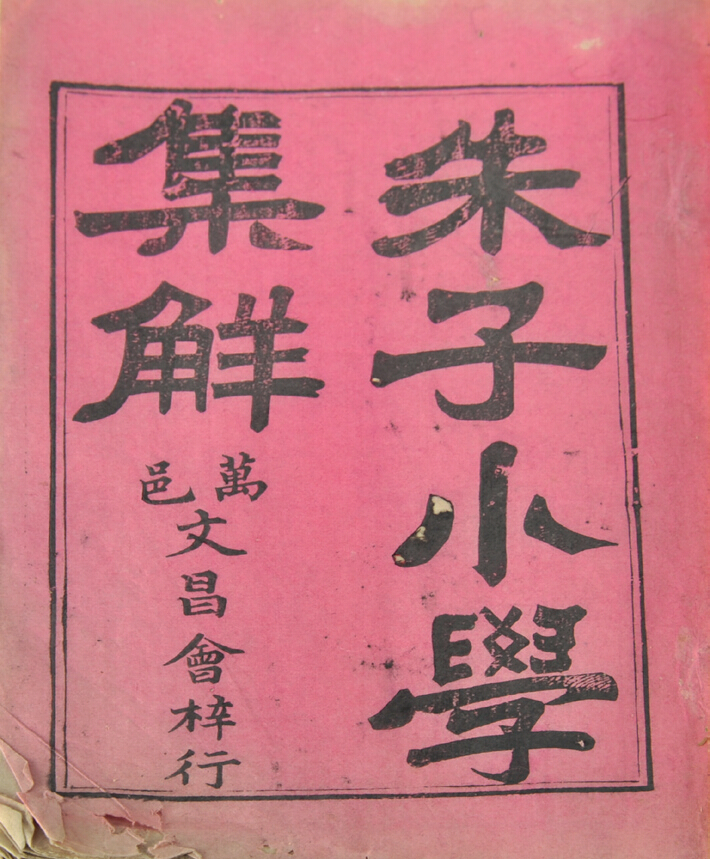 朱子小學
集解
萬邑文昌會梓行